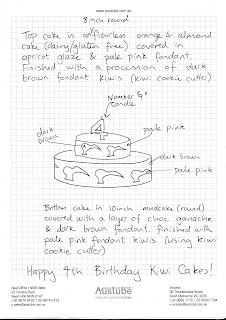 www.austube.com.au
8 inch round
Top cake is a flourless orange & almond
cake (dairy/gluten free) covered in
apricot glaze & pale pink fondant.
finished with a procession of dark
brown fondant kiwis (kiwi cookie cutter)
Number "4"
candle
4
dark
brown
pale pink
dark brown
pale pink
Bottom cake is 10inch mudcake (round)
covered with a layer of choc ganache
& dark brown fondant. finished with
pale pink fondant kiwis (using kiwi
cookie cutter)
Happy 4th Birthday Kiwi Cakes!
Head Office / NSW Sales
Seven Hills NSW 2147
Austube
Victoria
South Melbourne VIC 3205